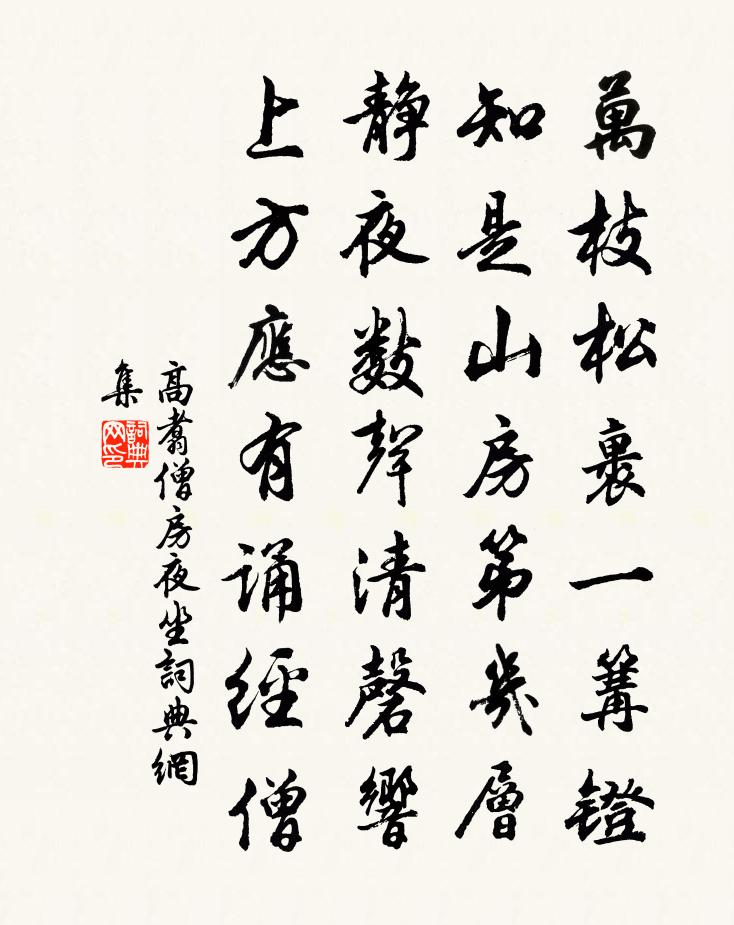 萬枝松裏一篝鐙
知是山房第幾層
静夜數聲清磬響
上方應有誦經僧
高翥僧房夜坐詞典網
集
詞典
网印